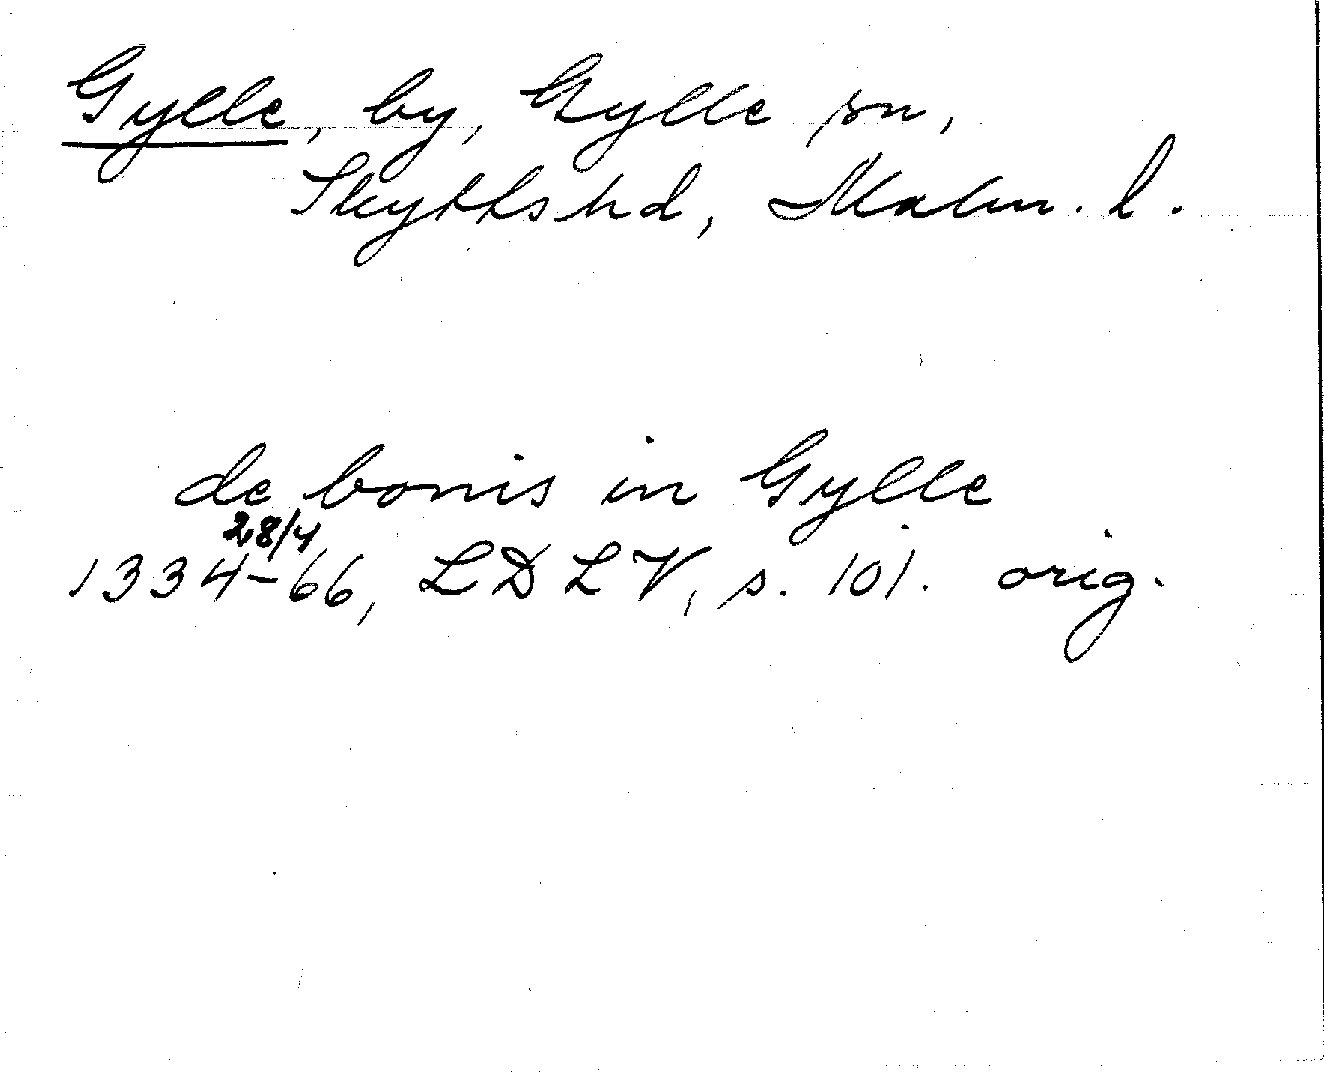 Gylle, by, Gylle sn,
Skytts hd, Malm. l.
de bonis in Gylle
28/4
1334-66, LDLV, s. 101. orig.